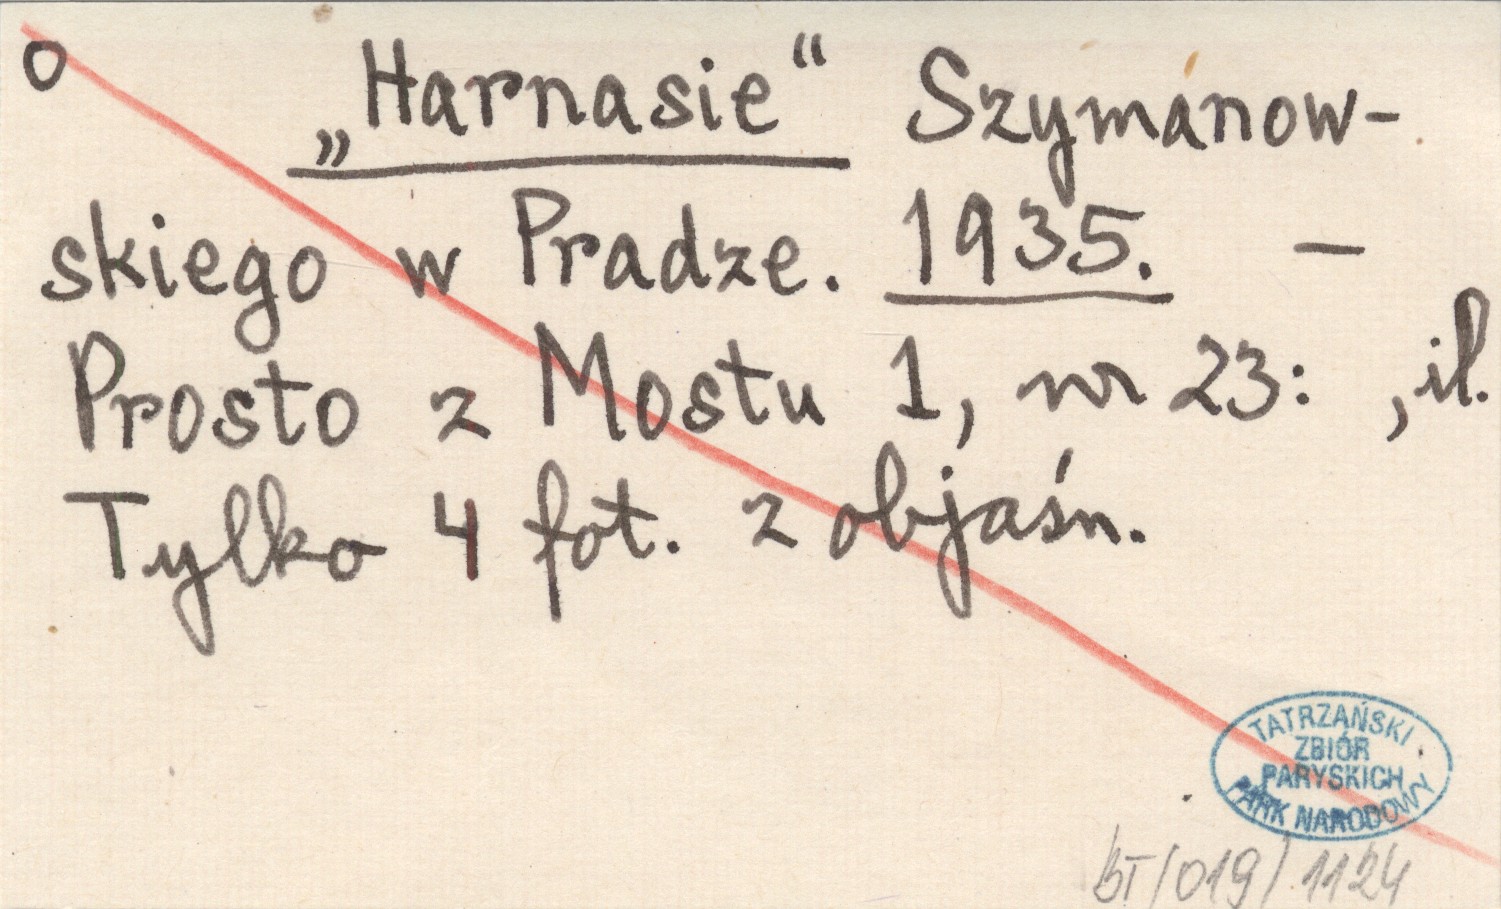 o „Harnasie“ Szymanow-
skiego w Pradze. 1935. —
Prosto z Mostu 1, nr 23: , il.
Tylko 4 fot. z objaśn.
TATRZAŃSKI
ZBIÓR
PARYSKICH
PARK NARODOWY
BT/019/1124